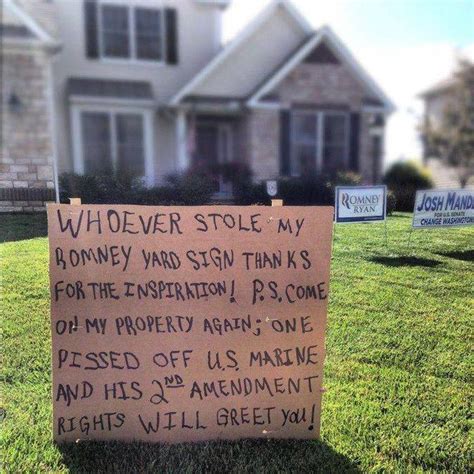 WHOEVER STOLE MY
ROMNEY YARD SIGN THANKS
FOR THE INSPIRATION! P.S, COME
ON MY PROPERTY AGAIN; ONE
PISSED OFF U.S. MARINE
AND HIS 2ND AMENDMENT
RIGHTS WILL GREET YOU!
ROMNEY
RYAN
JOSH MAND
FOR U.S. SENATE
CHANGE WASHINGTON